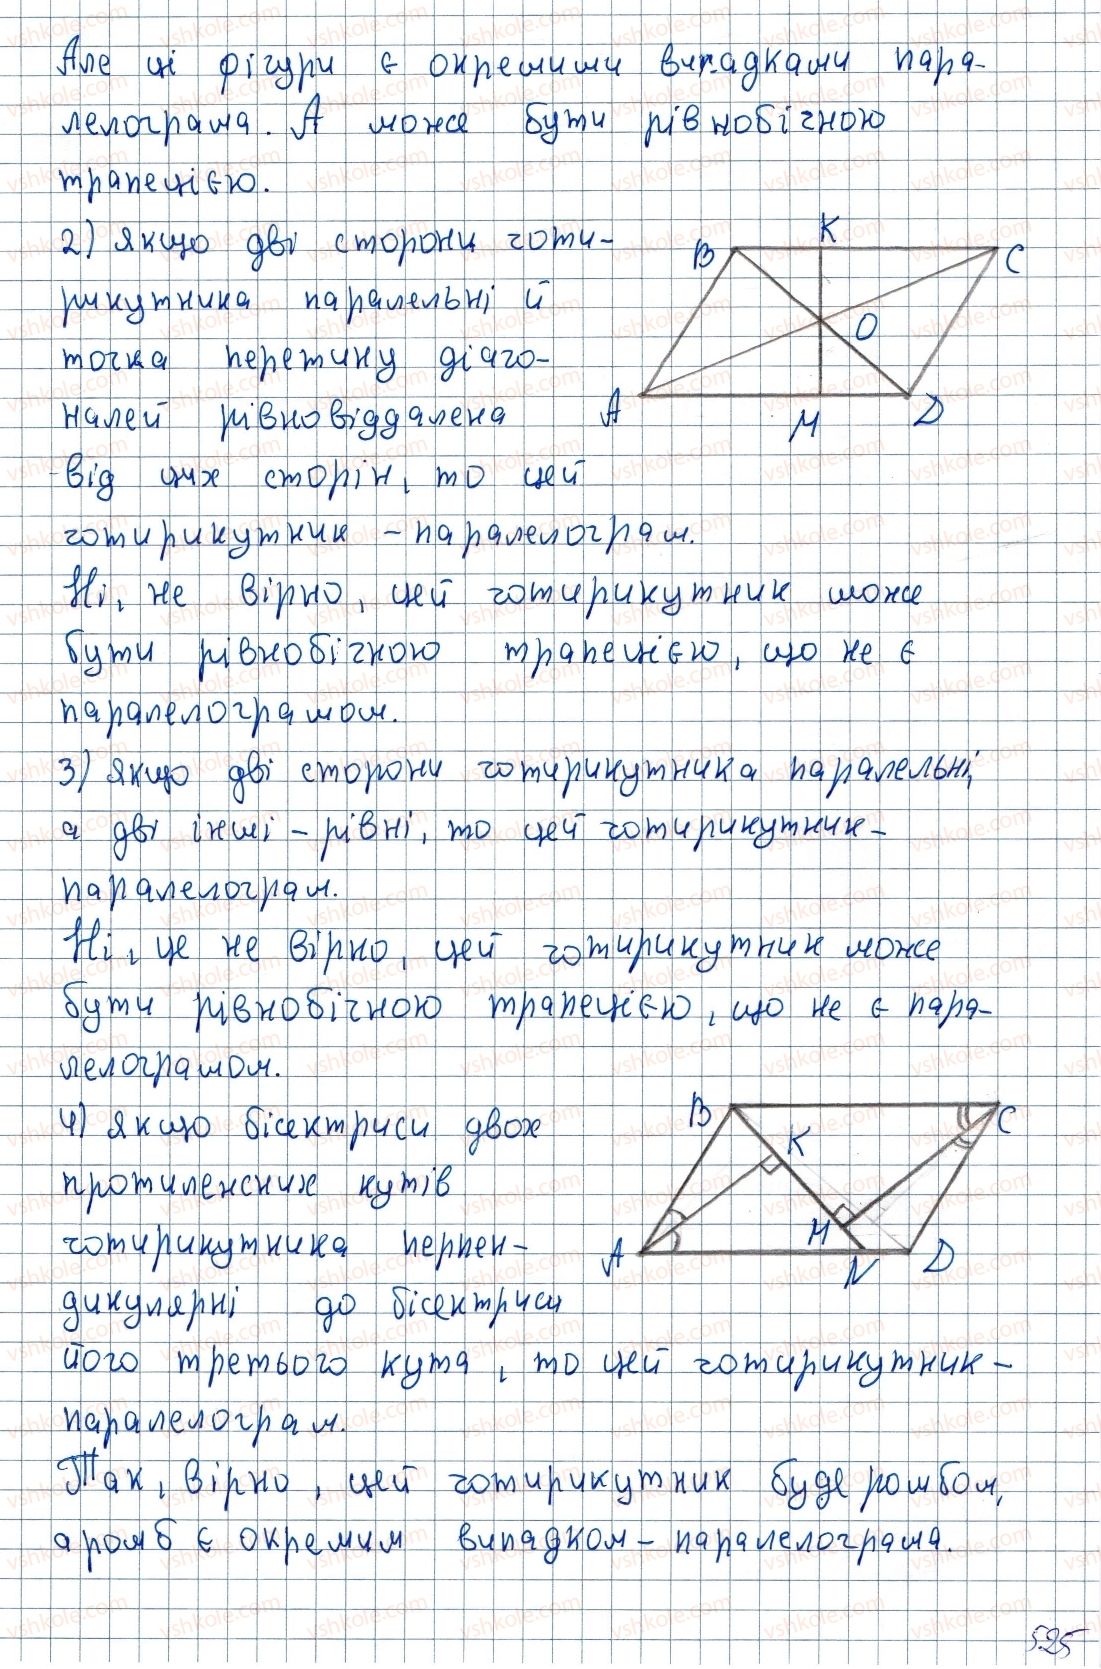 Але ці фігури є окремими випадками пара-
лелограма. А може бути рівнобічною
трапецією.
2) Якщо дві сторони чоти-
рикутника паралельні й
точка перетину діаго-
налей рівновіддалена
від цих сторін, то цей
чотирикутник - паралелограм.
B K C
O
A M D
Ні, не вірно, цей чотирикутник може
бути рівнобічною трапецією, що не є
паралелограмом.
3) Якщо дві сторони чотирикутника паралельні,
а дві інші - рівні, то цей чотирикутник -
паралелограм.
Ні, це не вірно, цей чотирикутник може
бути рівнобічною трапецією, що не є пара-
лелограмом.
4) Якщо бісектриси двох
протилежних кутів
чотирикутника перпен-
дикулярні до бісектриси
його третього кута, то цей чотирикутник -
паралелограм.
B C
K
M
A N D
Так, вірно, цей чотирикутник буде ромбом,
а ромб є окремим випадком - паралелограма.
525